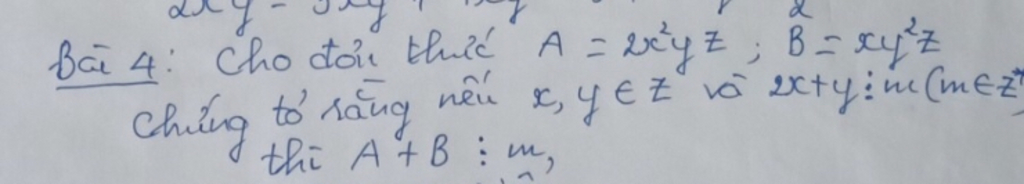 2xy - 3xy
Bài 4: Cho đơn thức A = 2x²yz ; B = xy²z
Chứng tỏ rằng nếu x, y ∈ Z và 2x+y ⋮ m (m ∈ Z*
thì A + B ⋮ m,